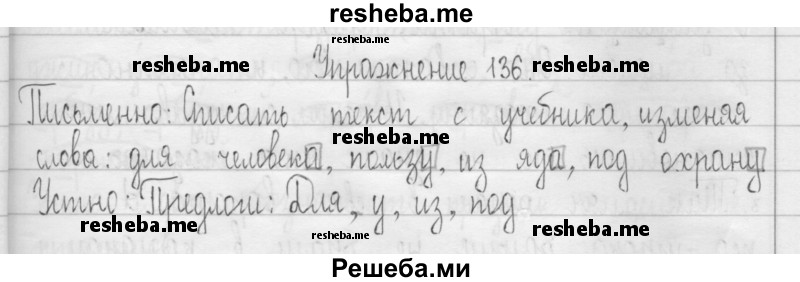 resheba.me
resheba.me
resheba.me Упражнение 136 resheba.me
Письменно: Списать текст с учебника, изменяя
resheba.me
слова: для человека, пользу, из яда, под охрану
Устно Предлоги: Для, у, из, под
resheba.me resheba.me
resheba.me
Решеба.ми